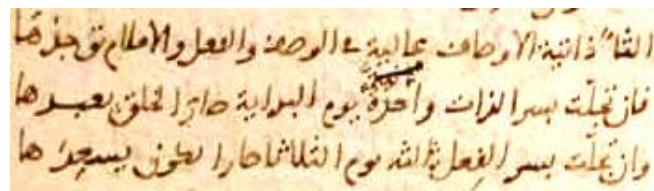 الثا ذاتية الاوصاف عالية في الوصف والفعل والاملام تو
فان تجلت بسر الذات واحدة يوم البداية صار الخلق يعبدها
وان تجلت بسر الفعل ثالثه يوم الثلاثا صار الكون يسعدها